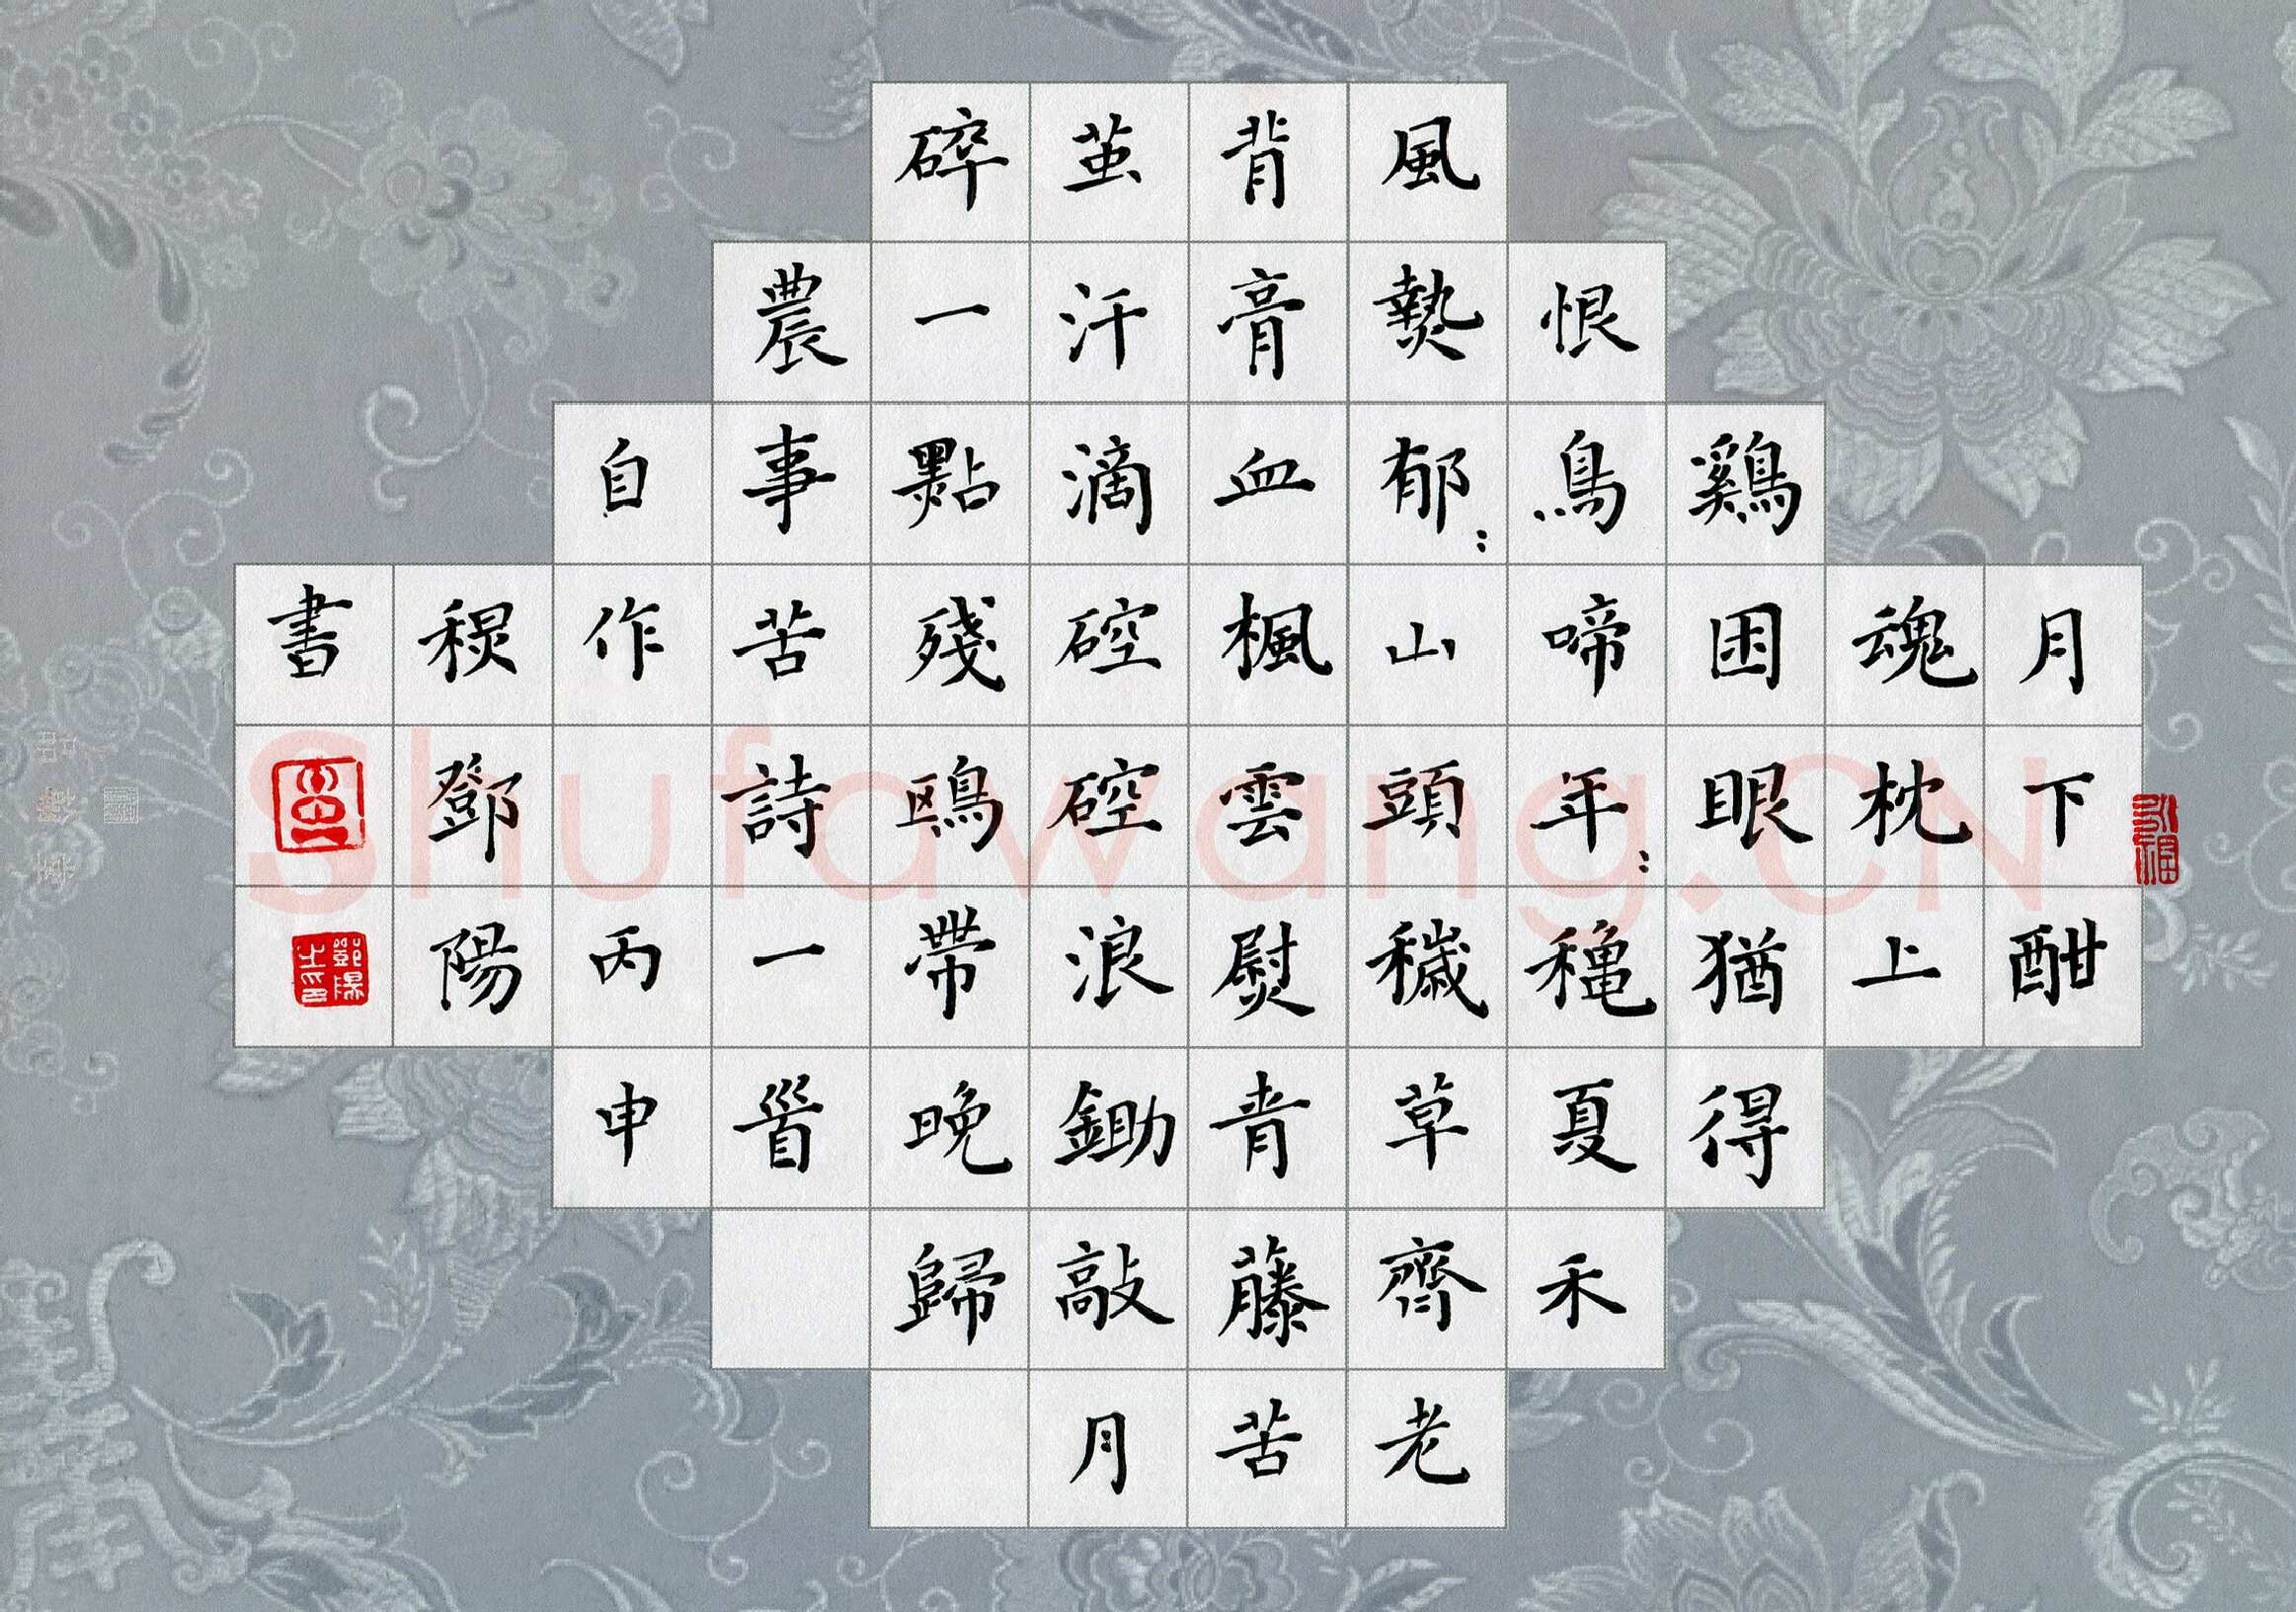 月下酣
魂枕上
鷄困眼猶得
恨鳥啼年：穐夏禾
風熱郁：山頭穢草齊老
背膏血楓雲熨青藤苦
茧汗滴硿硿浪鋤敲月
碎一點殘鴎帶晚歸
農事苦詩一首
自作 丙申
稷鄧陽
書
鄧陽之印
Shufawang.CN